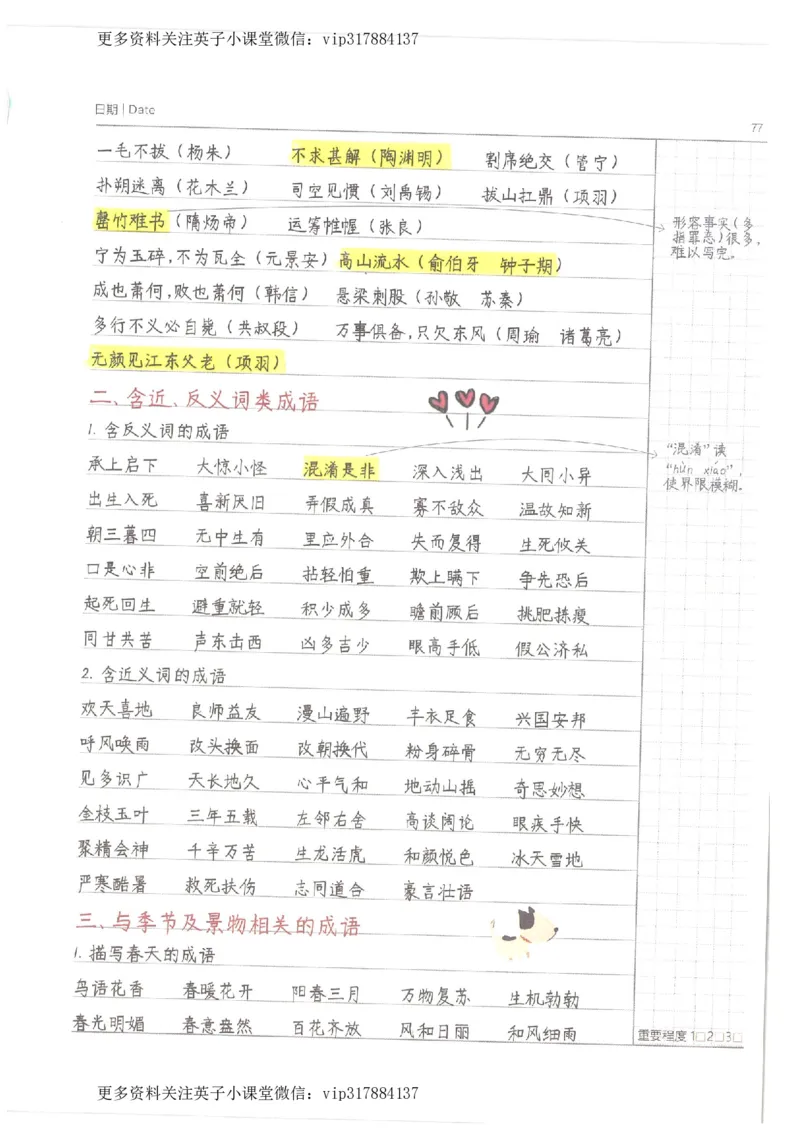 更多资料关注英子小课堂微信：vip317884137
日期 | Date
77
一毛不拔（杨朱） 不求甚解（陶渊明） 割席绝交（管宁）
扑朔迷离（花木兰） 司空见惯（刘禹锡） 拔山扛鼎（项羽）
罄竹难书（隋炀帝） 运筹帷幄（张良）
形容事实（多
指罪恶）很多，
难以写完。
宁为玉碎，不为瓦全（元景安） 高山流水（俞伯牙 钟子期）
成也萧何，败也萧何（韩信） 悬梁刺股（孙敬 苏秦）
多行不义必自毙（共叔段） 万事俱备，只欠东风（周瑜 诸葛亮）
无颜见江东父老（项羽）
二、含近、反义词类成语
1. 含反义词的成语
承上启下 大惊小怪 混淆是非 深入浅出 大同小异
“混淆”读
“hùn xiáo”，
使界限模糊.
出生入死 喜新厌旧 弄假成真 寡不敌众 温故知新
朝三暮四 无中生有 里应外合 失而复得 生死攸关
口是心非 空前绝后 拈轻怕重 欺上瞒下 争先恐后
起死回生 避重就轻 积少成多 瞻前顾后 挑肥拣瘦
同甘共苦 声东击西 凶多吉少 眼高手低 假公济私
2. 含近义词的成语
欢天喜地 良师益友 漫山遍野 丰衣足食 兴国安邦
呼风唤雨 改头换面 改朝换代 粉身碎骨 无穷无尽
见多识广 天长地久 心平气和 地动山摇 奇思妙想
金枝玉叶 三年五载 左邻右舍 高谈阔论 眼疾手快
聚精会神 千辛万苦 生龙活虎 和颜悦色 冰天雪地
严寒酷暑 救死扶伤 志同道合 豪言壮语
三、与季节及景物相关的成语
1. 描写春天的成语
鸟语花香 春暖花开 阳春三月 万物复苏 生机勃勃
春光明媚 春意盎然 百花齐放 风和日丽 和风细雨
重要程度 1□2□3□
更多资料关注英子小课堂微信：vip317884137